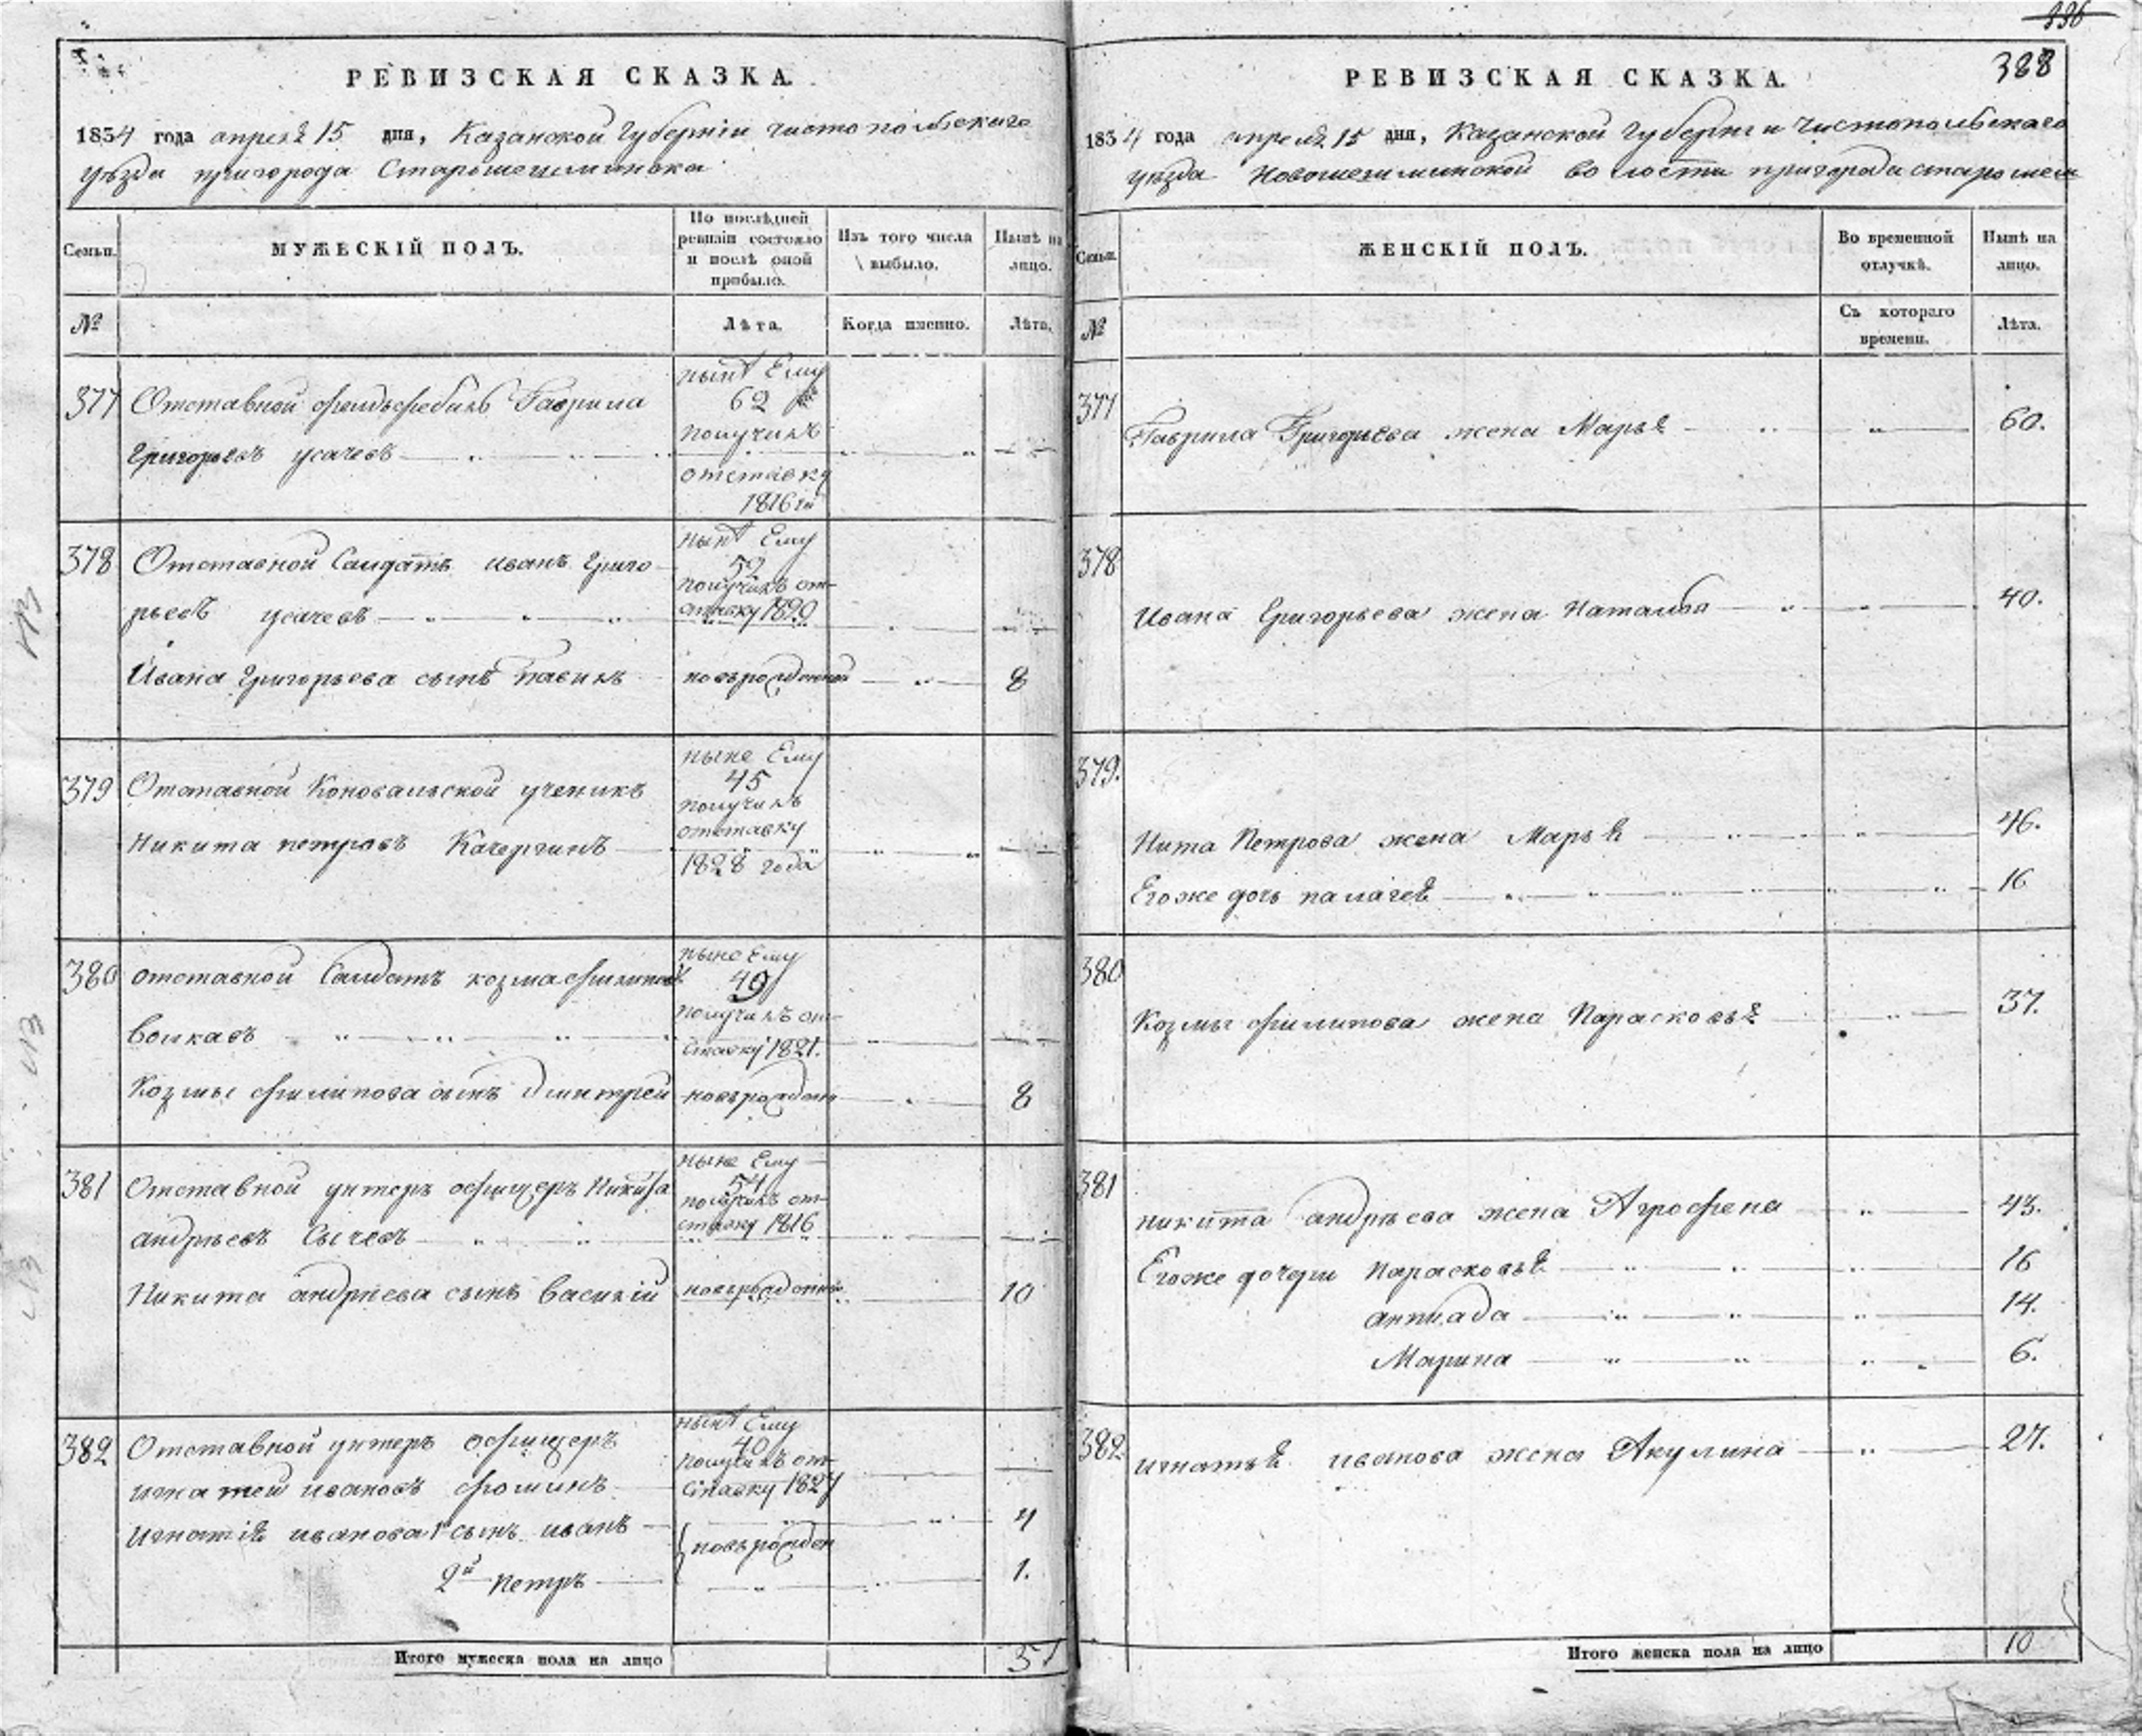 РЕВИЗСКАЯ СКАЗКА.
1834 года апреля 15 дня, Казанской Губернiи чистопольскаго
уѣзда пригорода Старошешминска
Семьи.
МУЖЕСКIЙ ПОЛЪ.
По послѣдней ревизiи состояло и послѣ оной прибыло.
Изъ того числа выбыло.
Нынѣ на лицо.
№
Лѣта.
Когда именно.
Лѣта.
377
Отставной фельдфебиль Гаврила
Григорьевъ усачевъ
нынѣ Ему
62
получилъ
отставку
1816 го
378
Отставной Салдатъ иванъ Григо
рьевъ усачевъ
нынѣ Ему
52
получилъ от
ставку 1820
Ивана Григорьева сынъ Павилъ
новърожденной
8
379
Отставной Коновальской ученикъ
Никита петровъ Качергинъ
ныне Ему
45
получилъ
отставку
1828 года
380
отставной Салдатъ козма филипов
волкавъ
ныне Ему
49
получилъ от
ставку 1821.
Козмы филипова сынъ Дмитрей
новърожден
8
381
Отставной унтеръ офицеръ Никита
андрѣевъ Сычевъ
ныне Ему
54
получилъ от
ставку 1816
Никита андрѣева сынъ василiй
новърожденной
10
382
Отставной унтеръ офицеръ
игнатей ивановъ фоминъ
нынѣ Ему
40
получилъ от
ставку 1827
Игнатiя иванова 1й сынъ иванъ
4
новърожден
2й Петръ
1.
Итого мужеска пола на лицо
5
336
388
РЕВИЗСКАЯ СКАЗКА.
1834 года апреля 15 дня, Казанской Губернiи Чистопольскаго
уѣзда Новошешминской волости пригорода старошеш
Семьи.
ЖЕНСКIЙ ПОЛЪ.
Во временной отлучкѣ.
Нынѣ на лицо.
№
Съ котораго времени.
Лѣта.
377
Гаврила Григорьева жена Марья
60.
378
Ивана Григорьева жена Наталья
40.
379.
Никита Петрова жена Марья
46.
Егоже дочь палагея
16
380
Козмы филипова жена Парасковья
37.
381
никита андрѣева жена Агрофена
43.
Егоже дочери парасковья
16
14.
Марина
6.
382.
игнатья иванова жена Акулина
27.
Итого женска пола на лицо
10